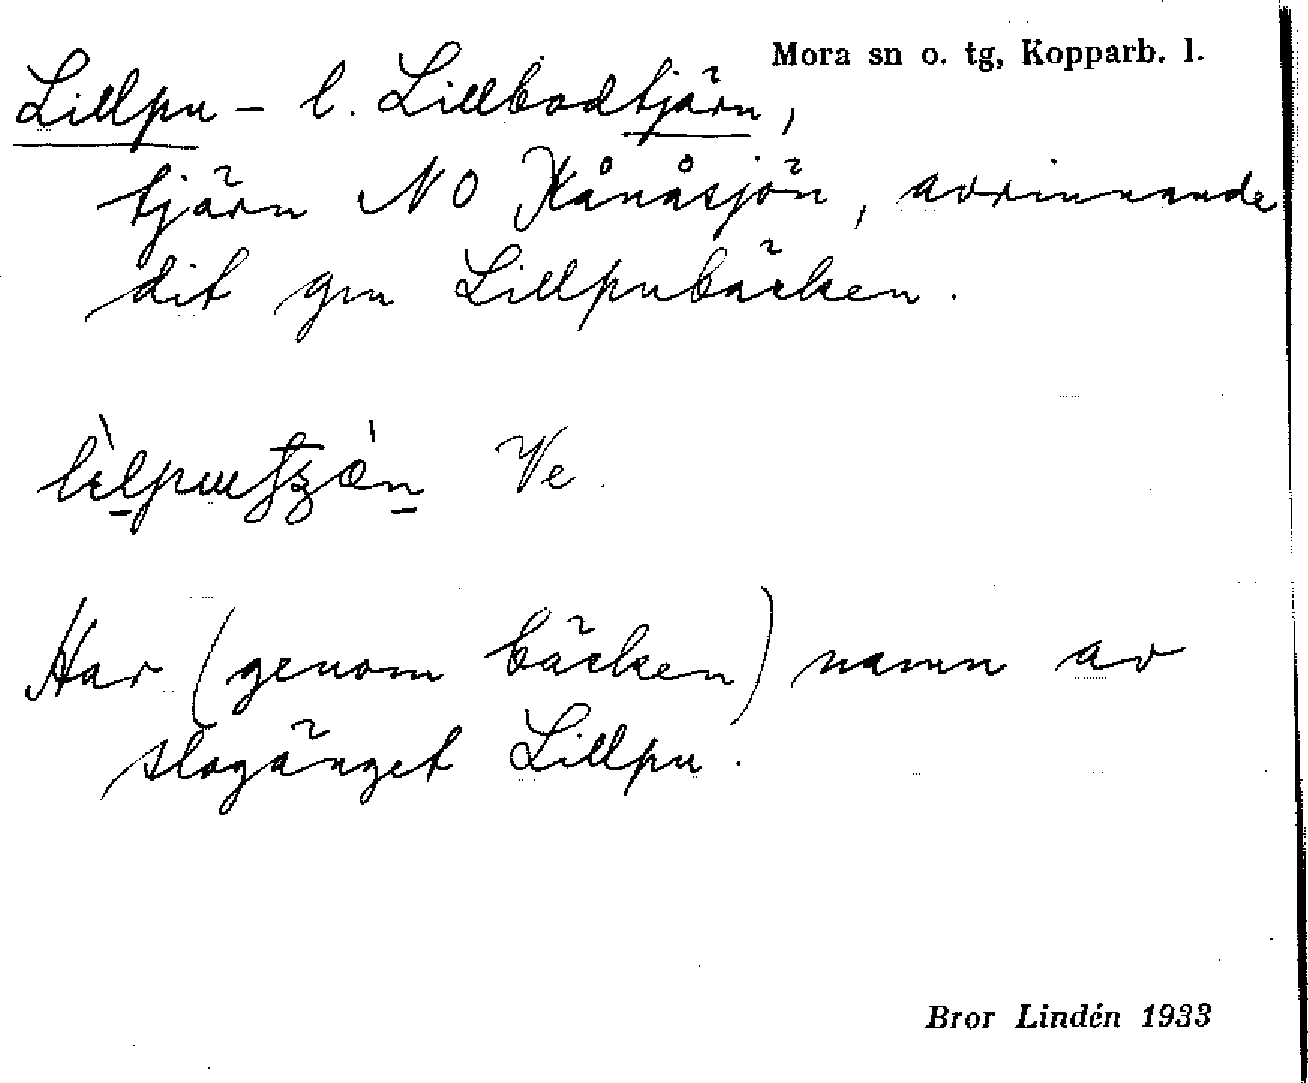 Mora sn o. tg, Kopparb. l.
Lillpu- l. Lillbodtjärn,
tjärn NO Kånåsjön, avrinnande
dit gm Lillpubäcken.
Ve.
Har (genom bäcken) namn av
slogänget Lillpu.
Bror Lindén 1933